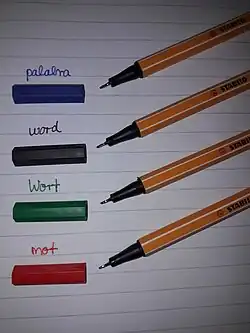 palabra
STABILO
word
STABILO
Wort
STABILO
mot
STABILO